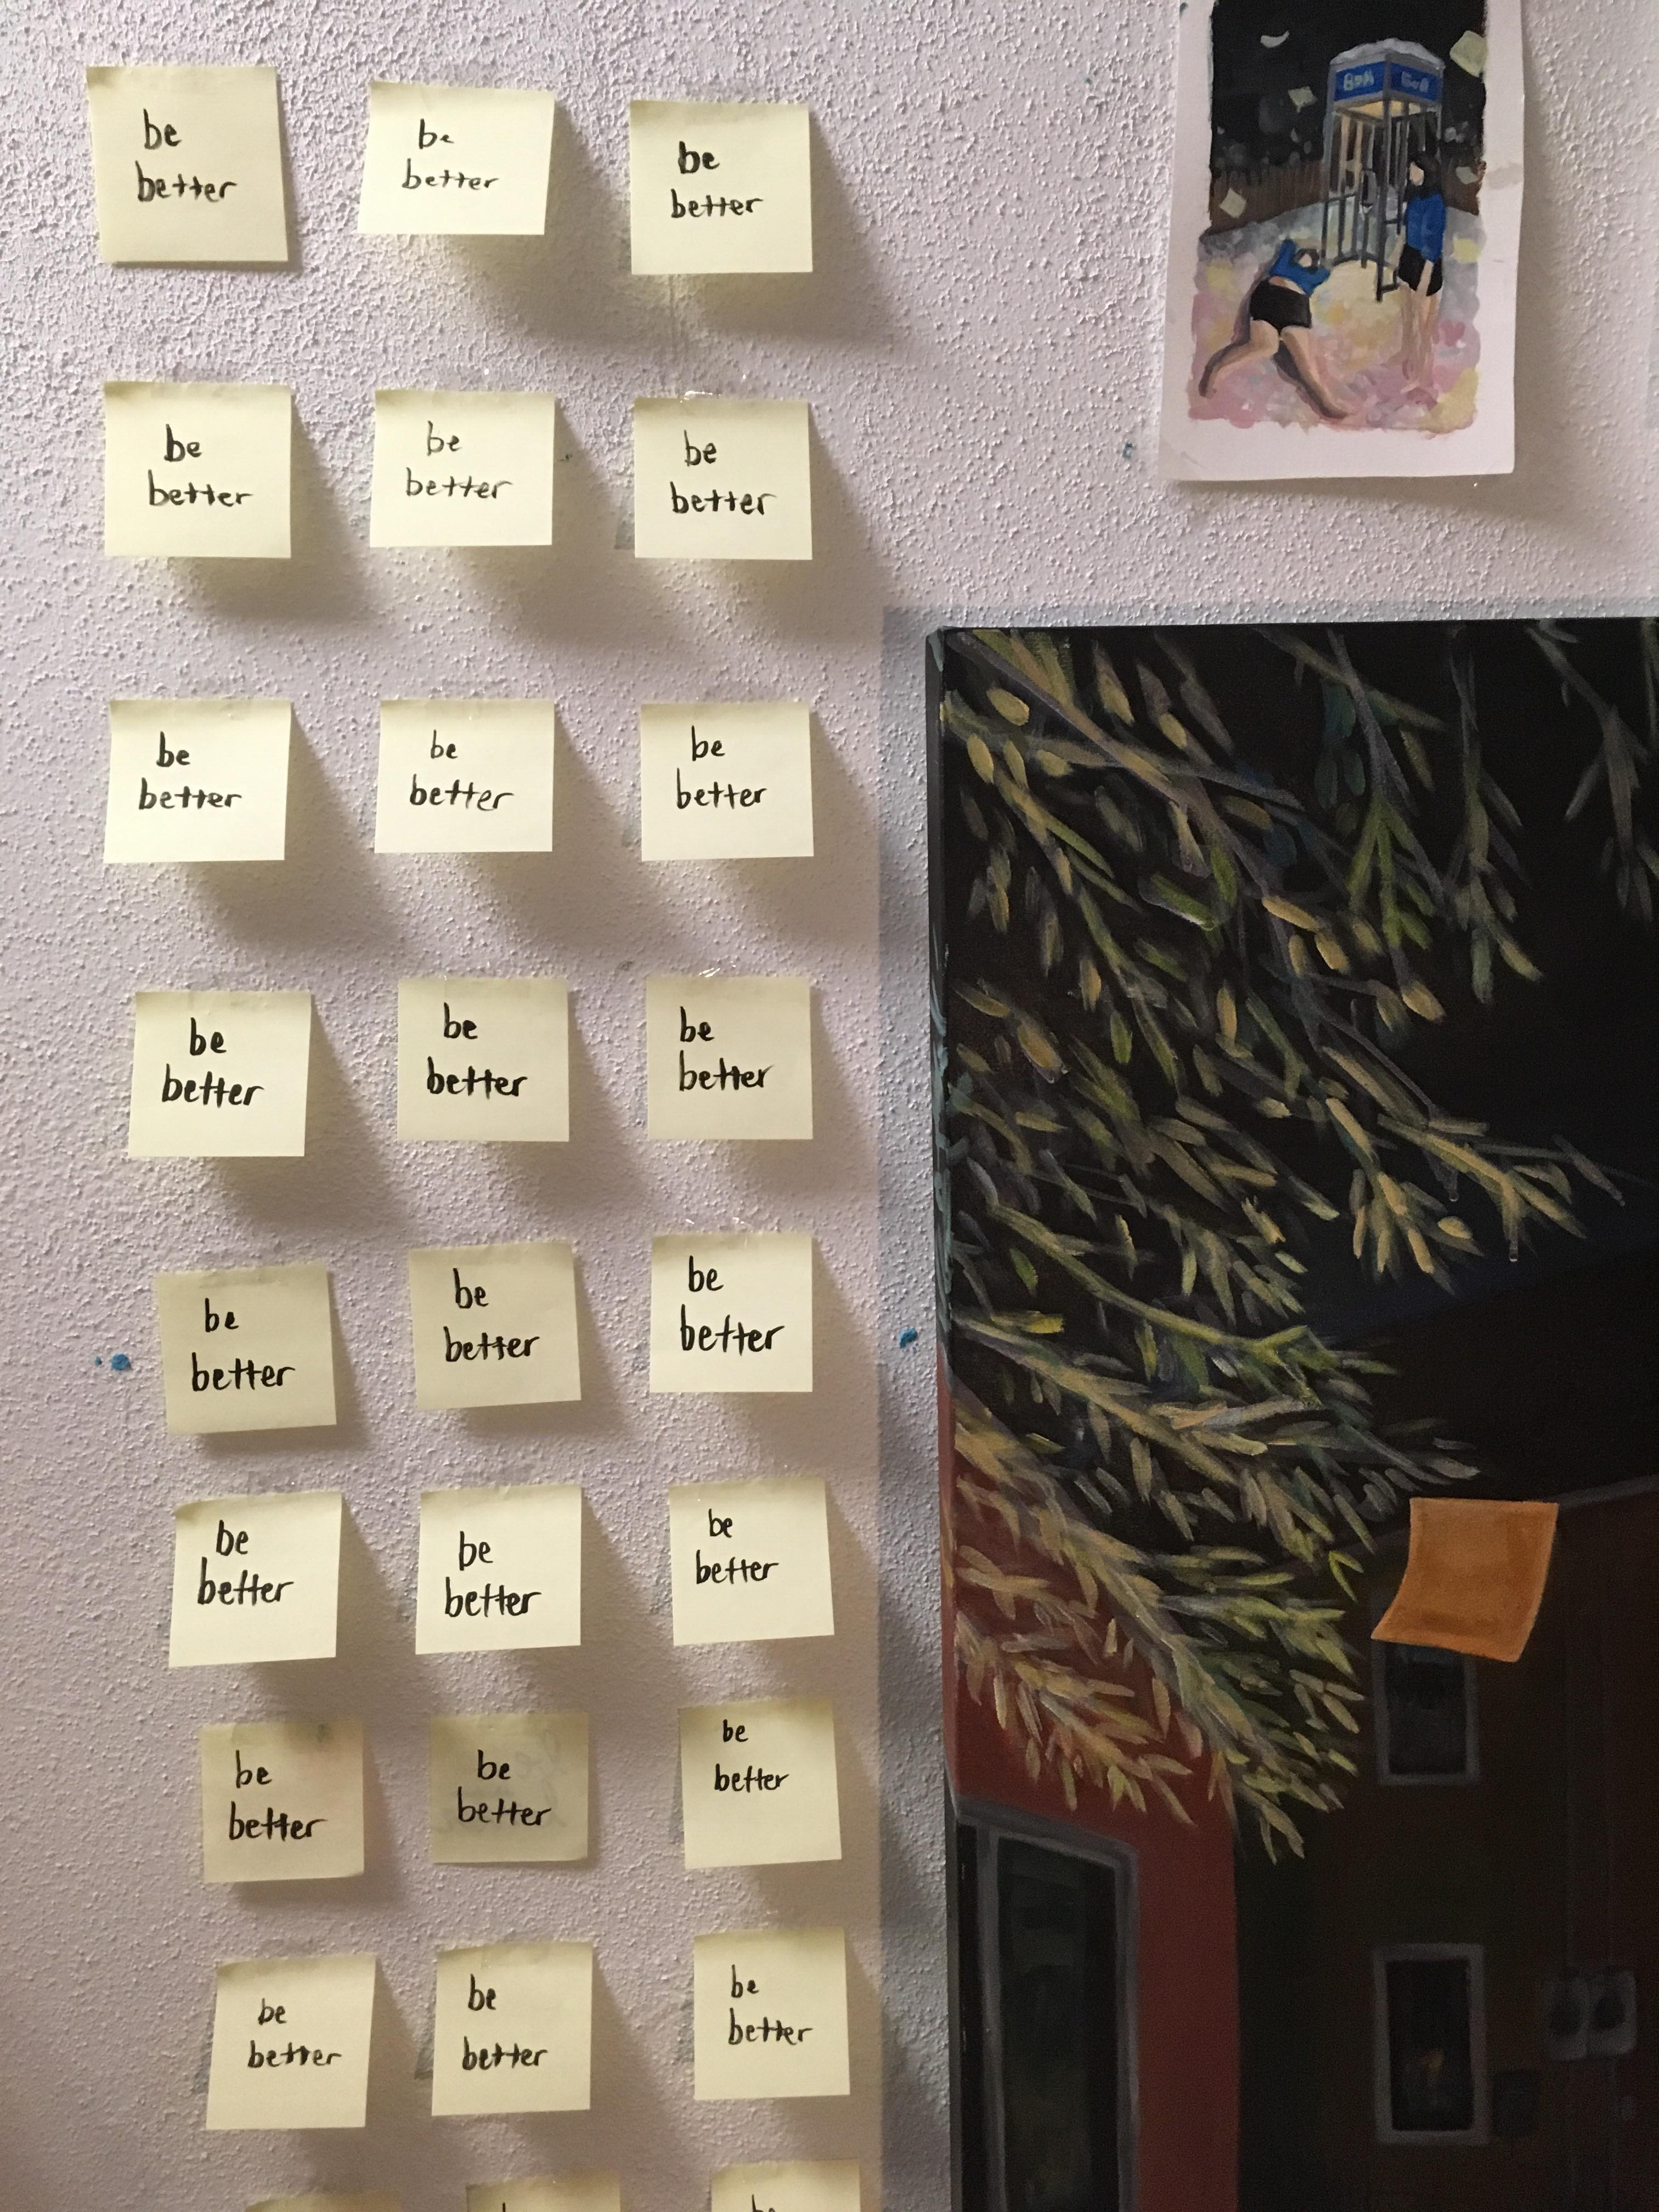 be
better
be
better
be
better
be
better
be
better
be
better
be
better
be
better
be
better
be
better
be
better
be
better
be
better
be
better
be
better
be
better
be
better
be
better
be
better
be
better
be
better
be
better
be
better
be
better
be